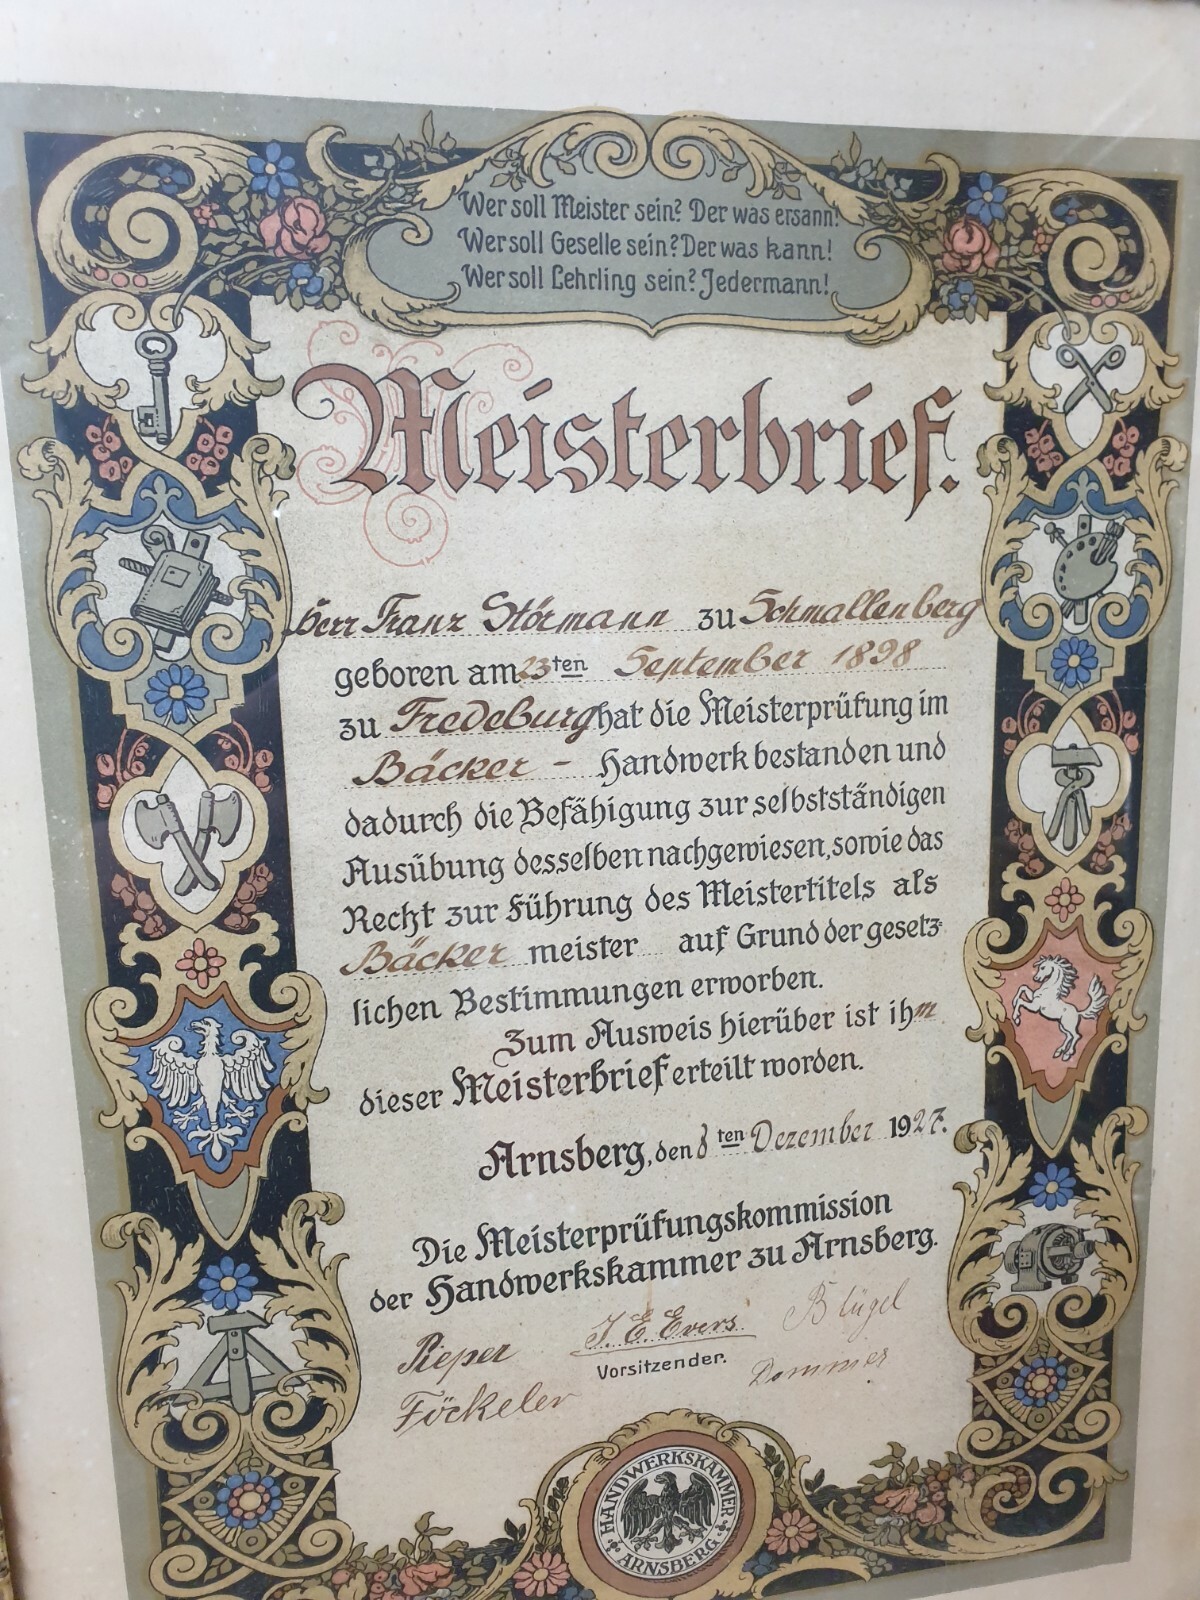 Wer soll Meister sein? Der was ersann!
Wer soll Geselle sein? Der was kann!
Wer soll Lehrling sein? Jedermann!
Meisterbrief.
Herr Franz Störmann zu Schmallenberg
geboren am 23ten September 1898
zu Fredeburg hat die Meisterprüfung im
Bäcker - Handwerk bestanden und
dadurch die Befähigung zur selbstständigen
Ausübung desselben nachgewiesen, sowie das
Recht zur Führung des Meistertitels als
Bäcker meister auf Grund der gesetz-
lichen Bestimmungen erworben.
Zum Ausweis hierüber ist ihm
dieser Meisterbrief erteilt worden.
Arnsberg, den 8ten Dezember 1927.
Die Meisterprüfungskommission
der Handwerkskammer zu Arnsberg.
Pieper J. E. Evers Blügel
Vorsitzender.
Föckeler Dommer
HANDWERKSKAMMER
ARNSBERG